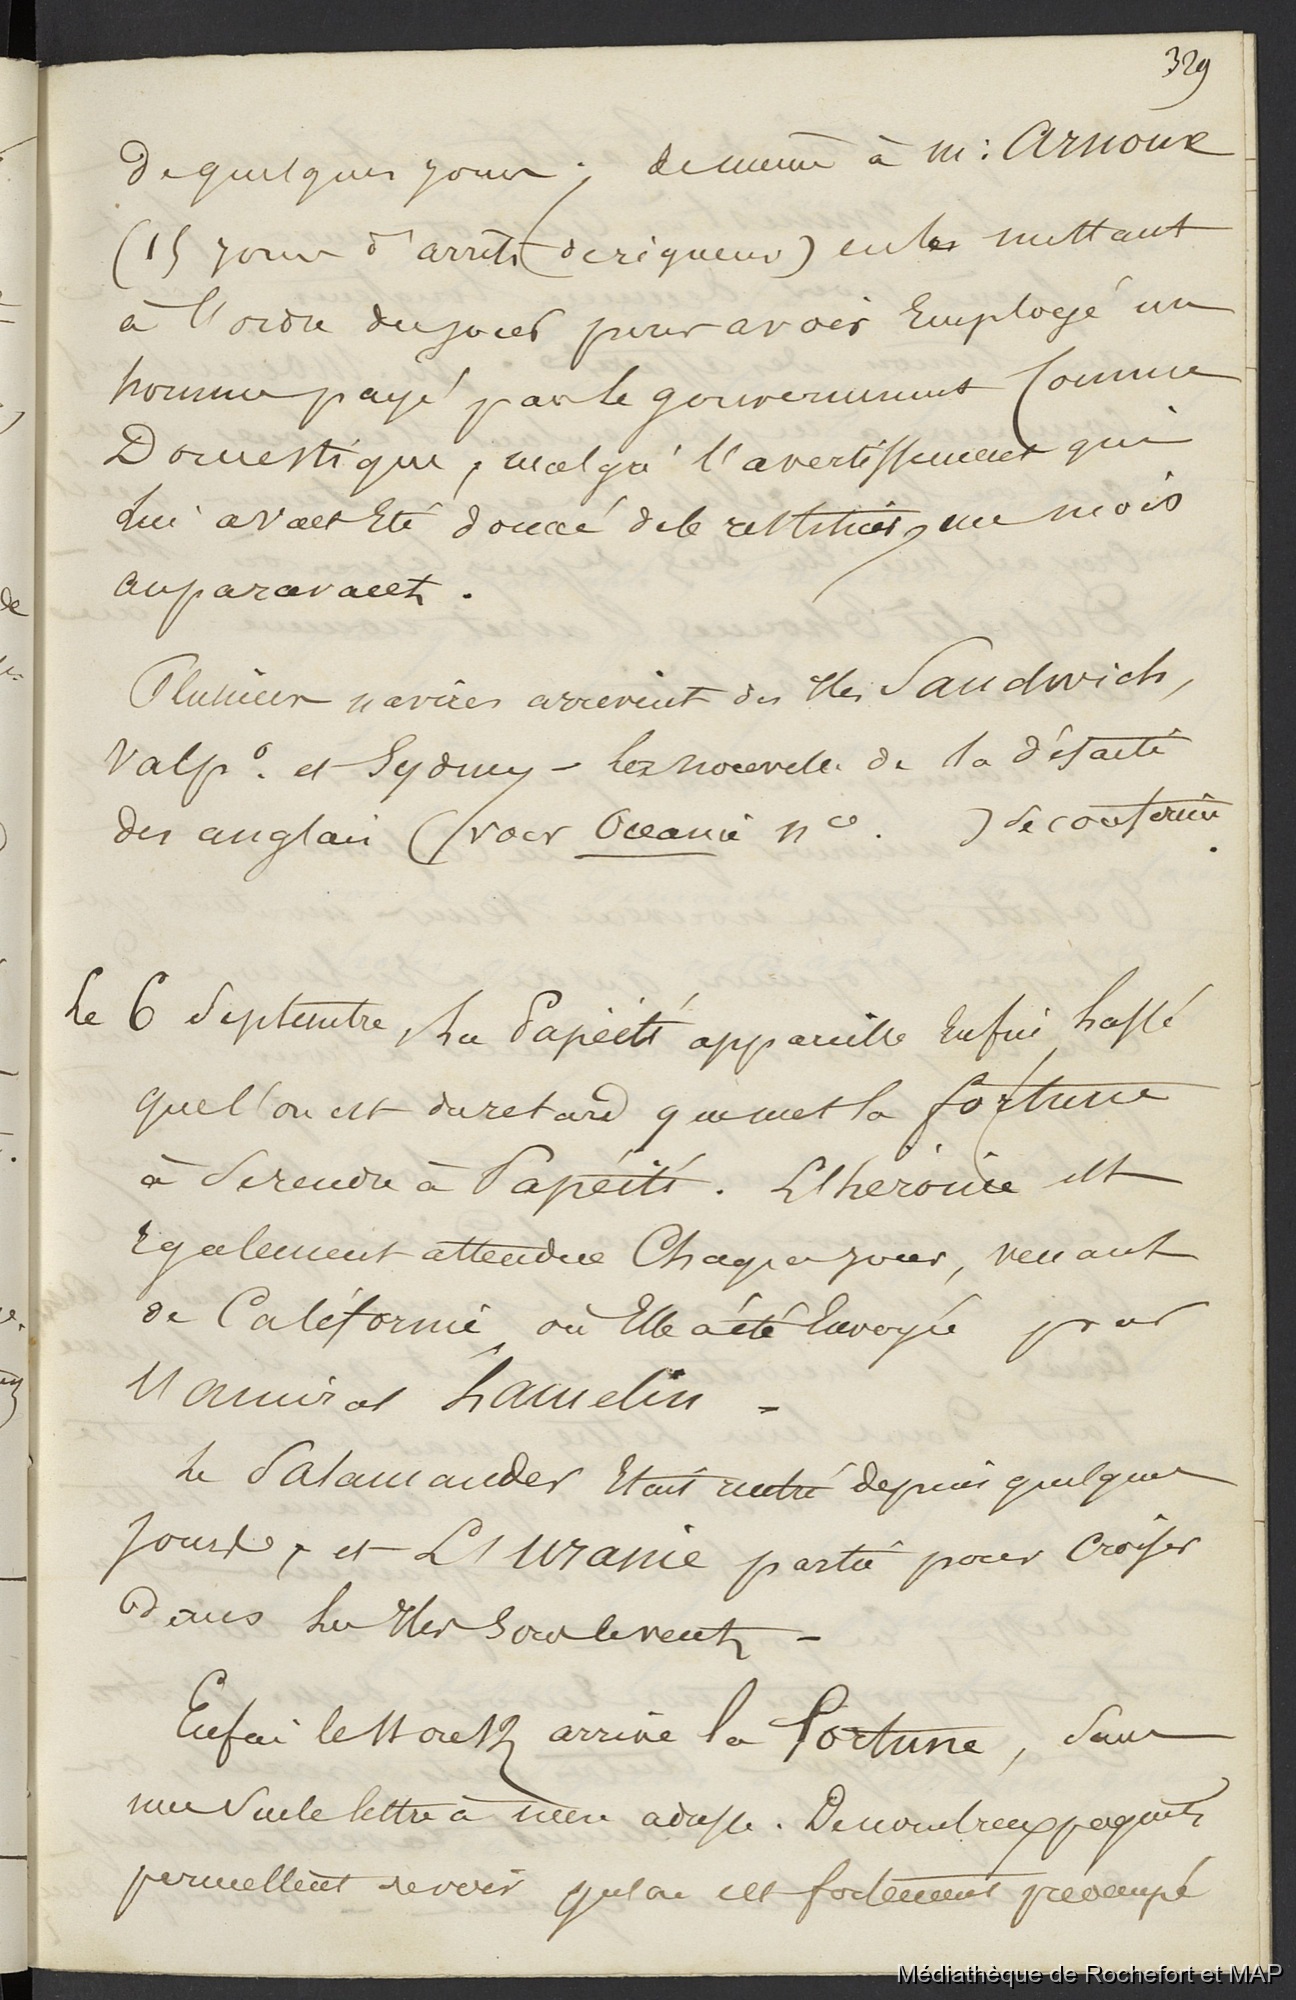 329
de quelques jours ; de même à m: Arnoux
(15 jours d'arrêts de rigueur) en les mettant
à l'ordre du jour pour avoir Employé un
homme payé par le gouvernement Comme
Domestique, malgré l'avertissement qui
lui avait Eté donné de le restituer, un mois
auparavant.
Plusieurs navires arrivent des Iles Sandwich,
Valp.o et Sydney - les nouvelles de la défaite
des anglais (voir Océanie n.o ) se confirme.
Le 6 Septembre, La Papéiti appareille Enfin, lassé
que l'on est du retard que met la fortune
à se rendre à Papéiti. L'héroïne est
Egalement attendue Chaque jour, venant
de Californie, où Elle a été Envoyée par
l'amiral hamelin -
Le Salamander Etait rentré depuis quelques
jours, et L'uranie partie pour Croiser
dans les Iles Sous le vent -
Enfin le arrive la fortune, Sans
une Seule lettre à mon adresse. De nombreux paquets
permettent de voir qu'on est fortement préoccupé
Médiathèque de Rochefort et MAP